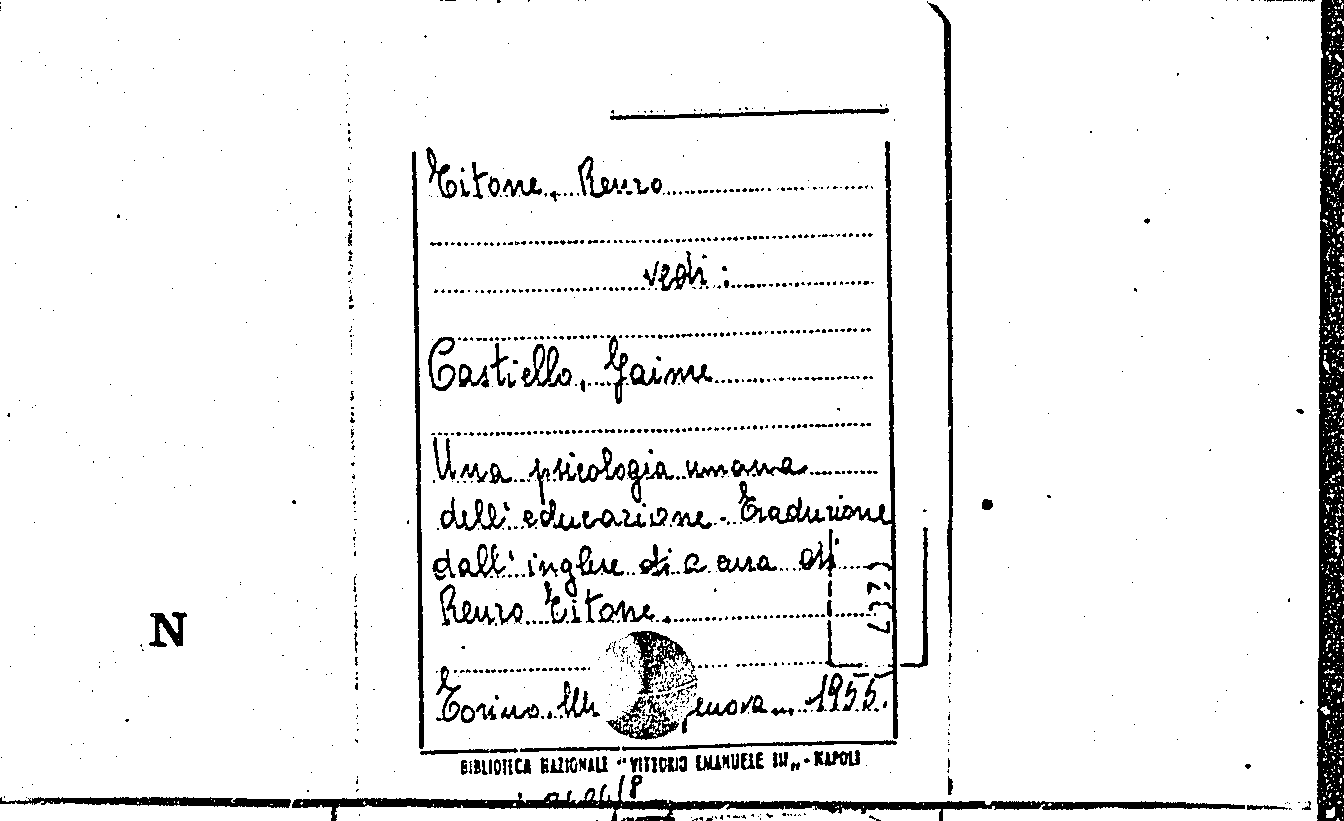 Titone, Renzo
vedi:
Castiello, Jaime
Una psicologia umana
dell'educazione. Traduzione
dall'inglese di a cura di
Renzo Titone.
Torino. 1955.
BIBLIOTECA NAZIONALE "VITTORIO EMANUELE III„ - NAPOLI
N